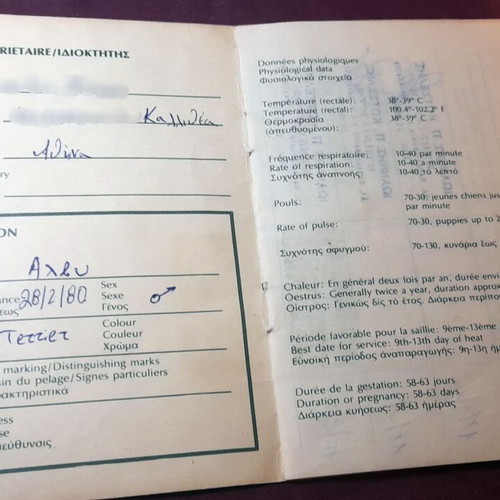 RIETAIRE/ΙΔΙΟΚΤΗΤΗΣ
Καλλιθέα
Αθήνα
ry
ON
Sex
ance 28/2/80 Sexe ♂
εως Γένος
Terrier Colour
Couleur
Χρώμα
marking/Distinguishing marks
in du pelage/Signes particuliers
ρακτηριστικά
ess
se
ευθυνσις
Données physiologiques
Physiological data
Φυσιολογικά στοιχεία
Température (rectale): 38°-39° C
Temperature (rectal): 100.4°-102.2° F
Θερμοκρασία 38°-39° C
(απευθυσμένου):
Fréquence respiratoire: 10-40 par minute
Rate of respiration: 10-40 a minute
Συχνότης αναπνοής: 10-40 το λεπτό
Pouls: 70-30: jeunes chiens jus
par minute
Rate of pulse: 70-30, puppies up to 2
Συχνότης σφυγμού: 70-130, κυνάρια έως
Chaleur: En général deux fois par an, durée envi
Oestrus: Generally twice a year, duration approx
Οίστρος: Γενικώς δίς το έτος. Διάρκεια περίπο
Période favorable pour la saillie: 9ème-13ème
Best date for service: 9th-13th day of heat
Ευνοική περίοδος αναπαραγωγής: 9η-13η ήμ
Durée de la gestation: 58-63 jours
Duration or pregnancy: 58-63 days
Διάρκεια κυήσεως: 58-63 ημέρας